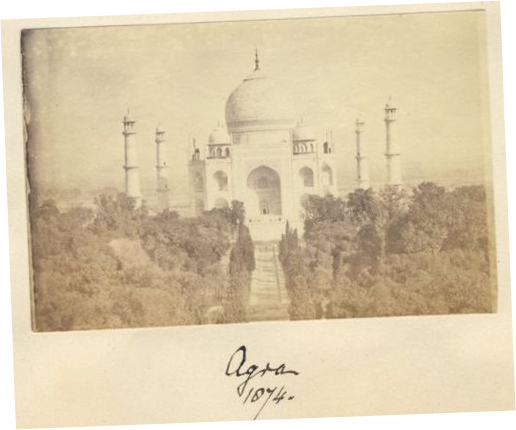 Agra
1874.